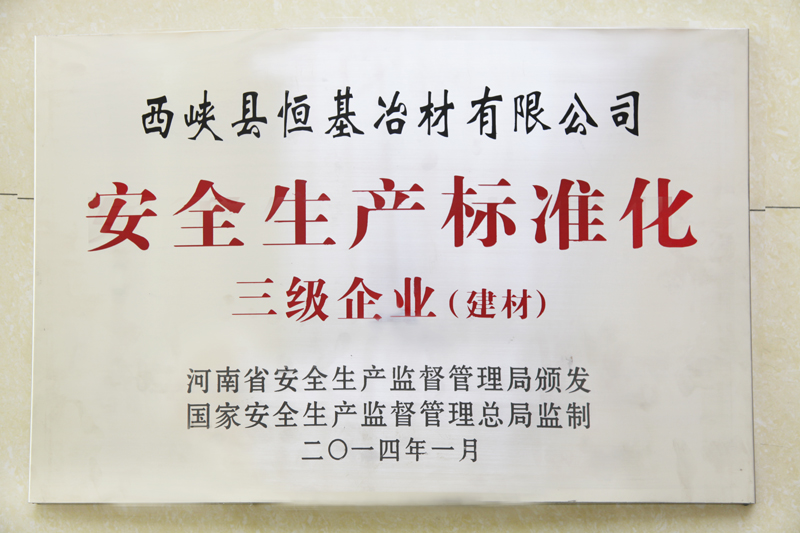 西峡县恒基冶材有限公司
安全生产标准化
三级企业（建材）
河南省安全生产监督管理局颁发
国家安全生产监督管理总局监制
二〇一四年一月